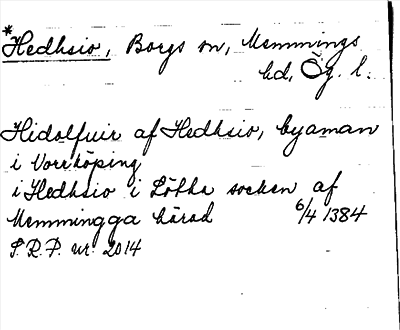 *Hedhsio, Borgs sn, Memmings
hd, Ög. l.
Hidolfuir af Hedhsio, byaman
i Norrköping
i Hedhsio i Lötha socken af
Memmingga härad 6/4 1384
S.R.P. nr. 2014